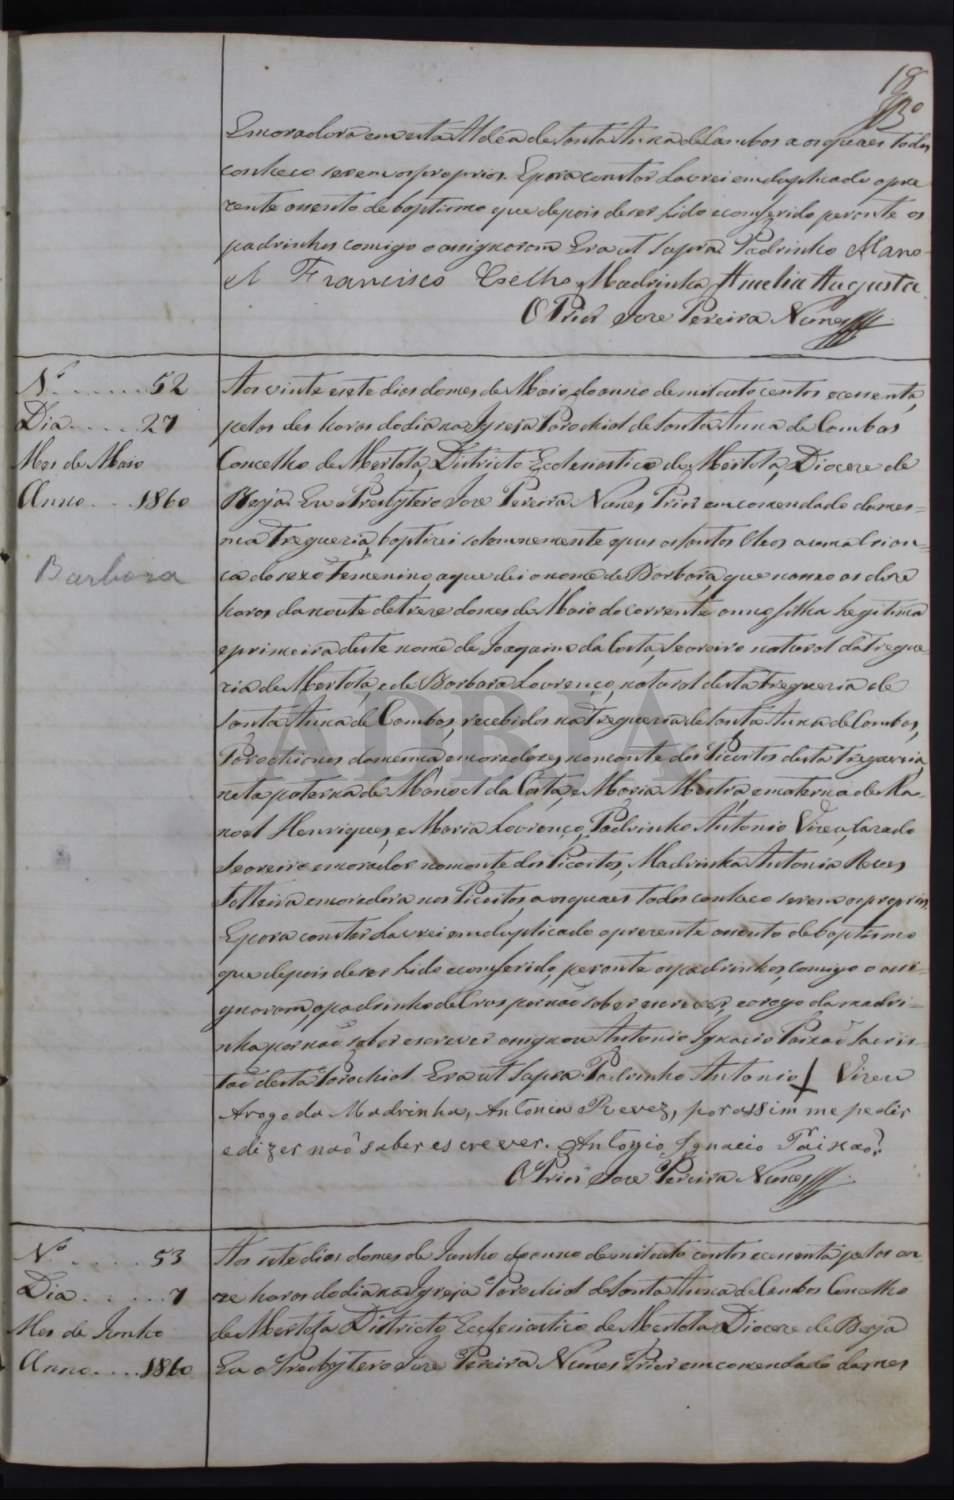 18
E moradora em esta Aldêa de Santa Anna de Cambas a os quaes todos
conheco serem os proprios. E para constar Lavrei em duplicado o pre
zente assento de baptismo que depois de ser lido e conferido perante os
padrinhos comigo o assignaram Era ut Supra Padrinho Mano-
el Francisco Coelho Madrinha Amelia Augusta
O Prior Joze Pereira Nunes
N.º ...... 52
Dia .... 27
Mes de Maio
Anno ... 1860
Barbora
Aos vinte e sete dias do mes de Maio do anno de mil oito centos e sessenta,
pelas des horas do dia na Igreja Parochial de Santa Anna de Cambas
Concelho de Mertola, Districto Ecclesiastico de Mertola, Diocese de
Beja. Eu o Presbytero Joze Pereira Nunes Prior emcomendado da mes=
ma Freguezia, baptizei solemnemente e pus os santos Oleos a uma crian=
ça do sexo Femenino, a que dei o nome de Barbara, que nasceo as doze
horas da noute de treze do mes de Maio do corrente anno, filha legitima
e primeira deste nome de Joaquim da Costa, Seareiro natural da Fregue
zia de Mertola, e de Barbara Lourenço, natural desta Freguezia de
Santa Anna de Cambas, recebidos na Freguezia de Santa Anna de Cambas,
Parochianos da mesma, e moradores no monte dos Picoitos desta Freguezia,
neta paterna de Manoel da Costa, e Maria Mestra, e materna de Ma-
noel Henriques, e Maria Lourenço, Padrinho Antonio Vizeu, Cazado
Seareiro e morador no monte dos Picoitos, Madrinha Antonia Reves
Solteira e moradora nos Picoitos, a os quaes todos conheco serem os proprios.
E para constar Lavrei em duplicado o prezente assento de baptismo
que depois de ser lido e conferido, perante os padrinhos, comigo o assi=
gnaram, o padrinho de Cruz por não saber escrever, e a rogo da madri=
nha por não saber escrever assignou Antonio Ignacio Paixaõ Sacris=
taõ desta Parochial. Era ut Supra Padrinho Antonio + Vizeu
Arogo da Madrinha, Antonia Revez, por assim me pedir
e dizer naõ saber escrever. Antonio Ignacio Paixaõ
O Prior Joze Pereira Nunes
N.º ..... 53
Dia ...... 7
Mes de Junho
Anno .... 1860
Aos sete dias do mes de Junho do anno de mil oito centos e sessenta pelas on
ze horas do dia na Igreja Parochial de Santa Anna de Cambas Concelho
de Mertola Districto Ecclesiastico de Mertola Diocese de Beja
Eu o Presbytero Joze Pereira Nunes Prior emcomendado da mes
ADBJA